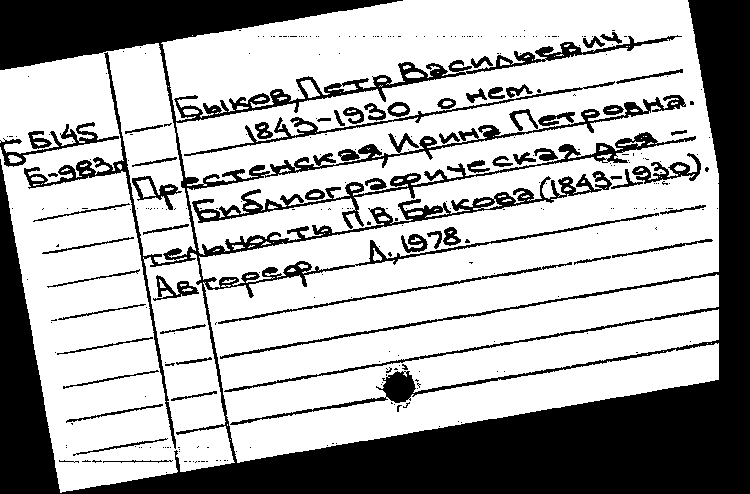 Быков, Петр Васильевич,
Б Б145
1843-1930, о нем.
Б-983п
Престенская, Ирина Петровна.
Библиографическая дея-
тельность П.В.Быкова (1843-1930).
Автореф. Л., 1978.